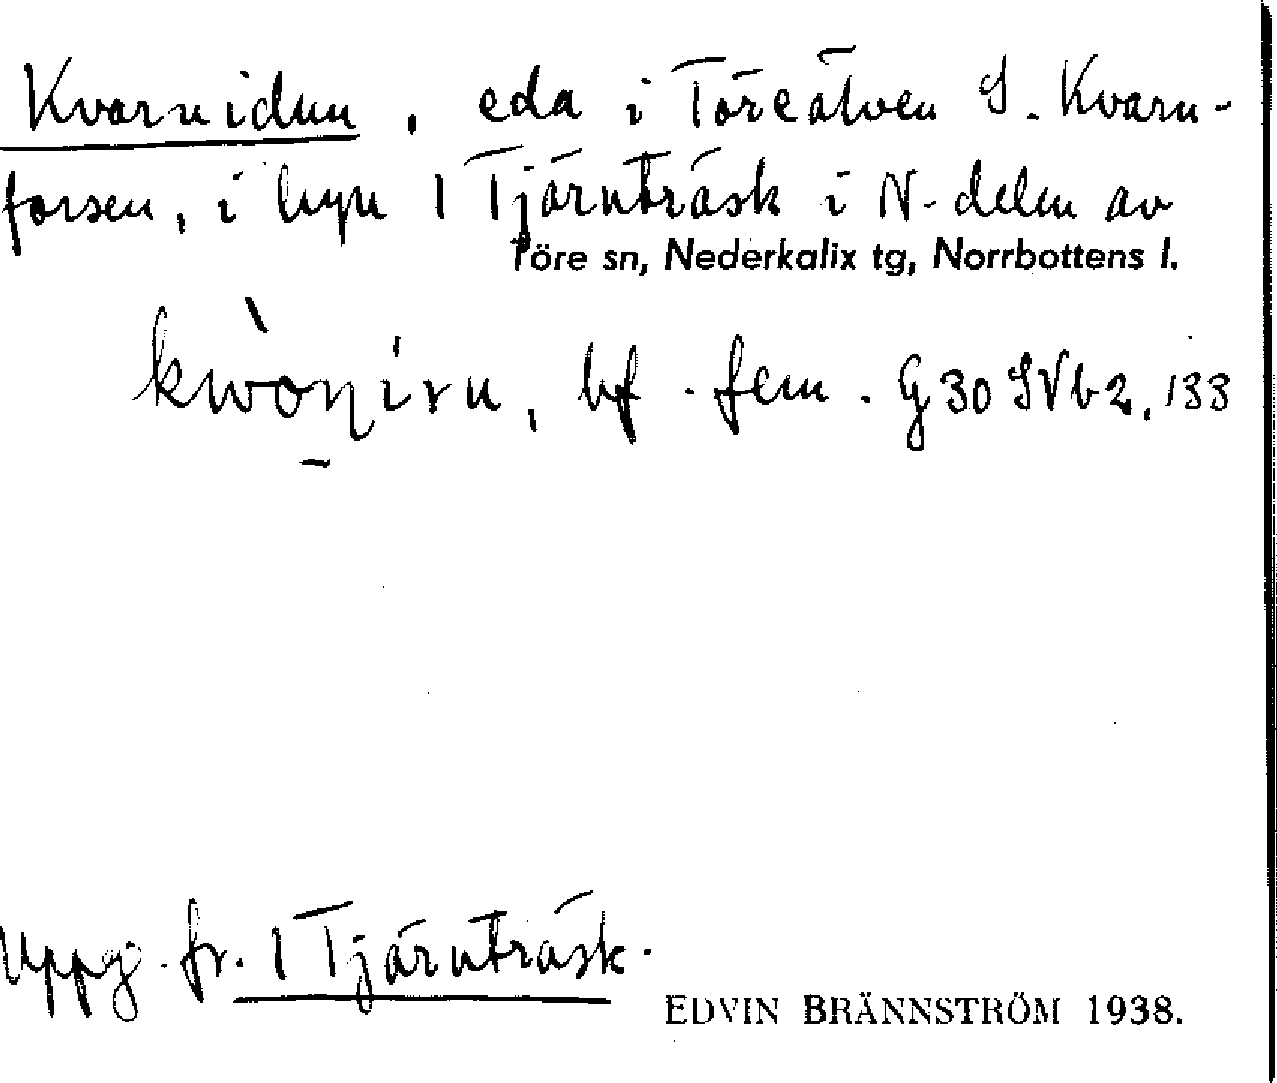 Kvarnidun, eda i Töreälven S. Kvarn-
forsen, i byn 1 Tjärnträsk i N-delen av
Töre sn, Nederkalix tg, Norrbottens l.
kwòn̠ịrn, bf. fem. G 30 SV b 2, 133
Uppg. fr. 1 Tjärnträsk.
EDVIN BRÄNNSTRÖM 1938.